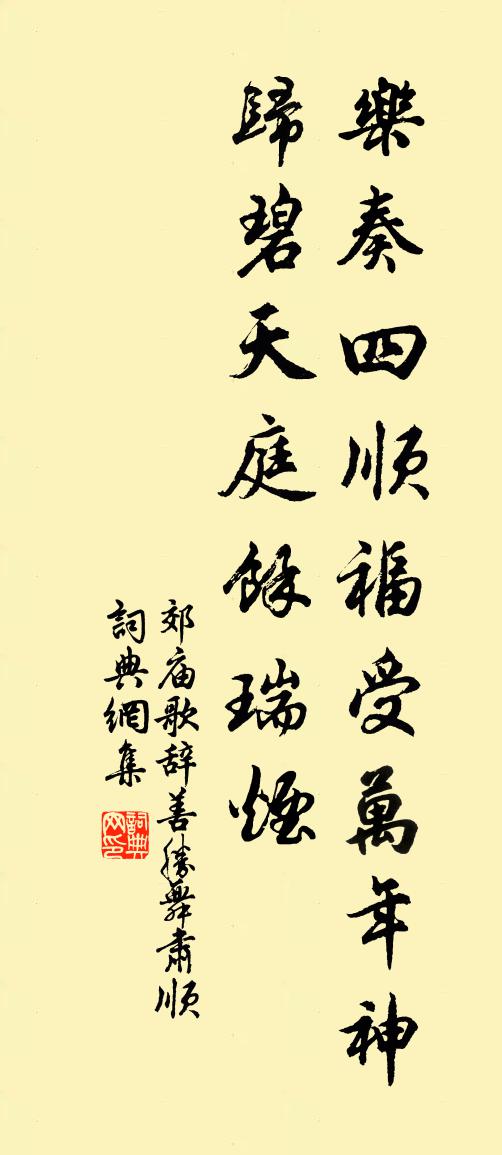 樂奏四順福受萬年神
歸碧天庭餘瑞煙
郊庙歌辞善勝舞肅順
詞典網集
詞典网印